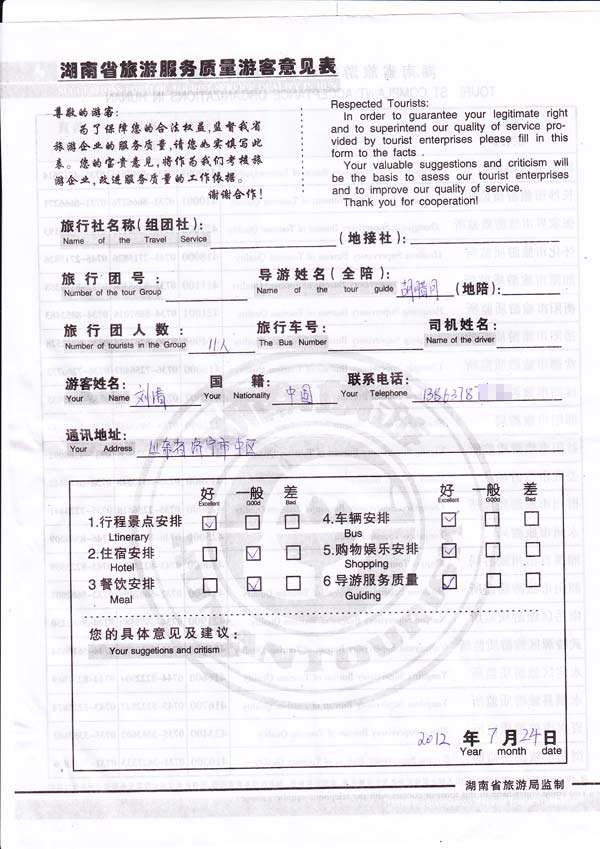 湖南省旅游服务质量游客意见表
尊敬的游客:
为了保障您的合法权益,监督我省
旅游企业的服务质量,请您如实填写此
表。您的宝贵意见,将作为我们考核旅
游企业,改进服务质量的工作依据。
谢谢合作!
Respected Tourists:
In order to guarantee your legitimate right
and to superintend our quality of service pro-
vided by tourist enterprises please fill in this
form to the facts .
Your valuable suggestions and criticism will
be the basis to asess our tourist enterprises
and to improve our quality of service.
Thank you for cooperation!
旅行社名称(组团社): (地接社):
Name of the Travel Service
旅行团号: 导游姓名(全陪): 胡腊月 (地陪):
Number of the tour Group Name of the tour guide
旅行团人数: 11人 旅行车号: 司机姓名:
Number of tourists in the Group The Bus Number Name of the driver
游客姓名: 刘清 国籍: 中国 联系电话: 1386378
Your Name Your Nationality Your Telephone
通讯地址: 山东省济宁市中区
Your Address
好 一般 差 好 一般 差
Excellent Good Bad Excellent Good Bad
1.行程景点安排 4.车辆安排
Ltinerary Bus
2.住宿安排 5.购物娱乐安排
Hotel Shopping
3 餐饮安排 6 导游服务质量
Meal Guiding
您的具体意见及建议:
Your suggetions and critism
2012 年 7 月 24 日
Year month date
湖南省旅游局监制